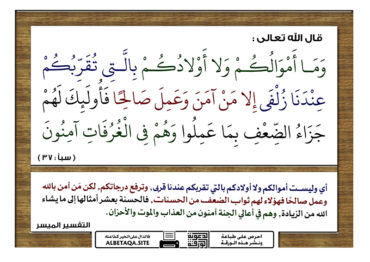 قال الله تعالى :
وَمَا أَمْوَالُكُمْ وَلَا أَوْلَادُكُمْ بِالَّتِي تُقَرِّبُكُمْ
عِنْدَنَا زُلْفَى إِلَّا مَنْ آمَنَ وَعَمِلَ صَالِحًا فَأُولَئِكَ لَهُمْ
جَزَاءُ الضِّعْفِ بِمَا عَمِلُوا وَهُمْ فِي الْغُرُفَاتِ آمِنُونَ
( سبأ : ٣٧ )
أي وليست أموالكم ولا أولادكم بالتي تقربكم عندنا قربى، وترفع درجاتكم، لكن مَن آمن بالله
وعمل صالحًا فهؤلاء لهم ثواب الضعف من الحسنات، فالحسنة بعشر أمثالها إلى ما يشاء
الله من الزيادة، وهم في أعالي الجنة آمنون من العذاب والموت والأحزان.
التفسير الميسر
احرص على طباعة
ونشر هذه الورقة
فالدال على الخير كفاعله
ALBETAQA.SITE